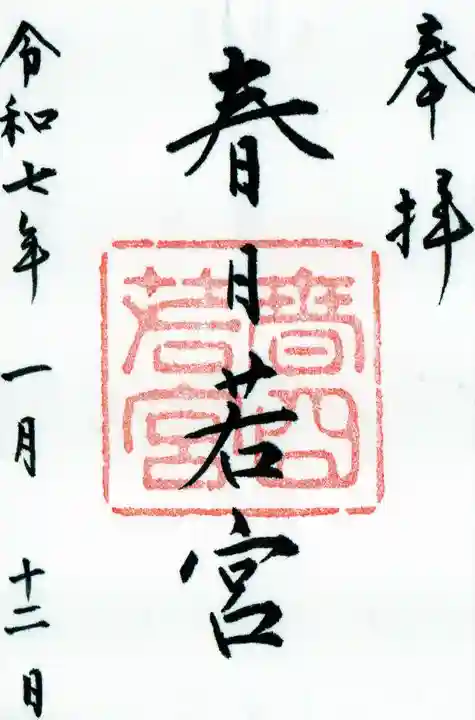 奉拝
春日若宮
春日
若宮
令和七年 一月 十二日